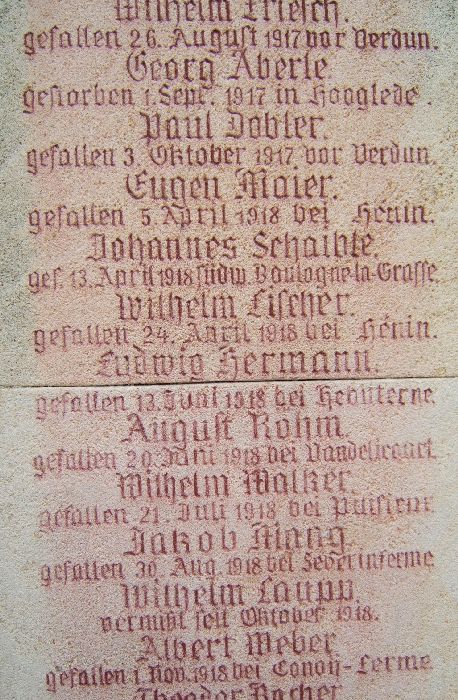 Wilhelm Friesch.
gefallen 26. August 1917 vor Verdun.
Georg Aberle.
gestorben 1. Sept. 1917 in Hooglede.
Paul Dobler.
gefallen 3. Oktober 1917 vor Verdun.
Eugen Maier.
gefallen 5. April 1918 bei Hénin.
Johannes Schaible.
gef. 13. April 1918 südw. Boulogne-la-Grasse.
Wilhelm Fischer.
gefallen 24. April 1918 bei Hénin.
Ludwig Hermann.
gefallen 13. Juni 1918 bei Hebuterne.
August Rohm.
gefallen 20. Juni 1918 bei
Wilhelm Walker.
gefallen 21. Juli 1918 bei Puisieux.
Jakob Mang.
gefallen 30. Aug. 1918 bei
Wilhelm Laupp.
vermißt seit Oktober 1918.
Albert Weber.
gefallen 1. Nov. 1918 bei Conoy-Ferme.
Theodor